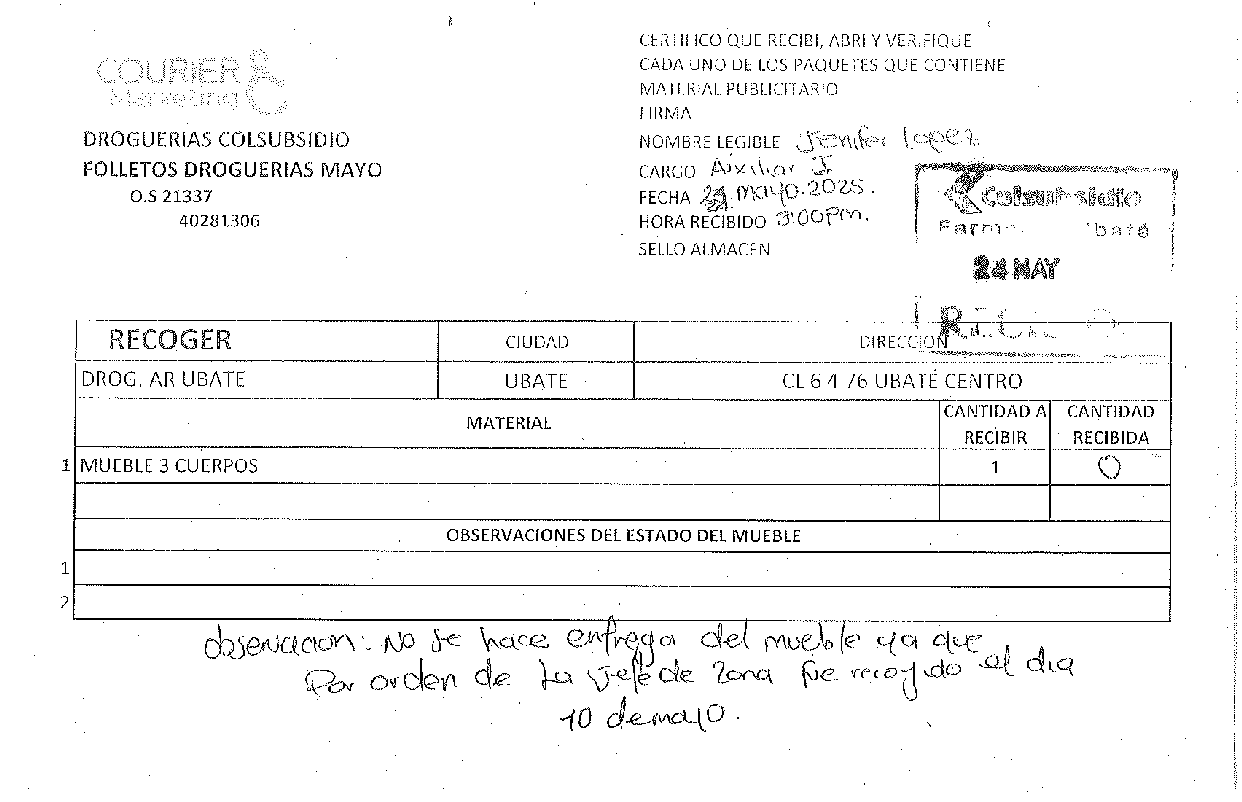 COURIER
Marketing
DROGUERIAS COLSUBSIDIO
FOLLETOS DROGUERIAS MAYO
O.S 21337
40281306
CERTIFICO QUE RECIBI, ABRI Y VERIFIQUE
CADA UNO DE LOS PAQUETES QUE CONTIENE
MATERIAL PUBLICITARIO
FIRMA
NOMBRE LEGIBLE Jenifer Lopez
CARGO Auxiliar I
FECHA 24 mayo. 2025.
HORA RECIBIDO 3:00 Pm.
SELLO ALMACEN
Colsubsidio
24 MAY
RECOGER CIUDAD DIRECCION
DROG. AR UBATE UBATE CL 6 4 76 UBATE CENTRO
MATERIAL CANTIDAD A RECIBIR CANTIDAD RECIBIDA
1 MUEBLE 3 CUERPOS 1 0
OBSERVACIONES DEL ESTADO DEL MUEBLE
1
2
observacion: No se hace entrega del mueble ya que
Por orden de la Jefe de Zona fue recogido el dia
10 de mayo.